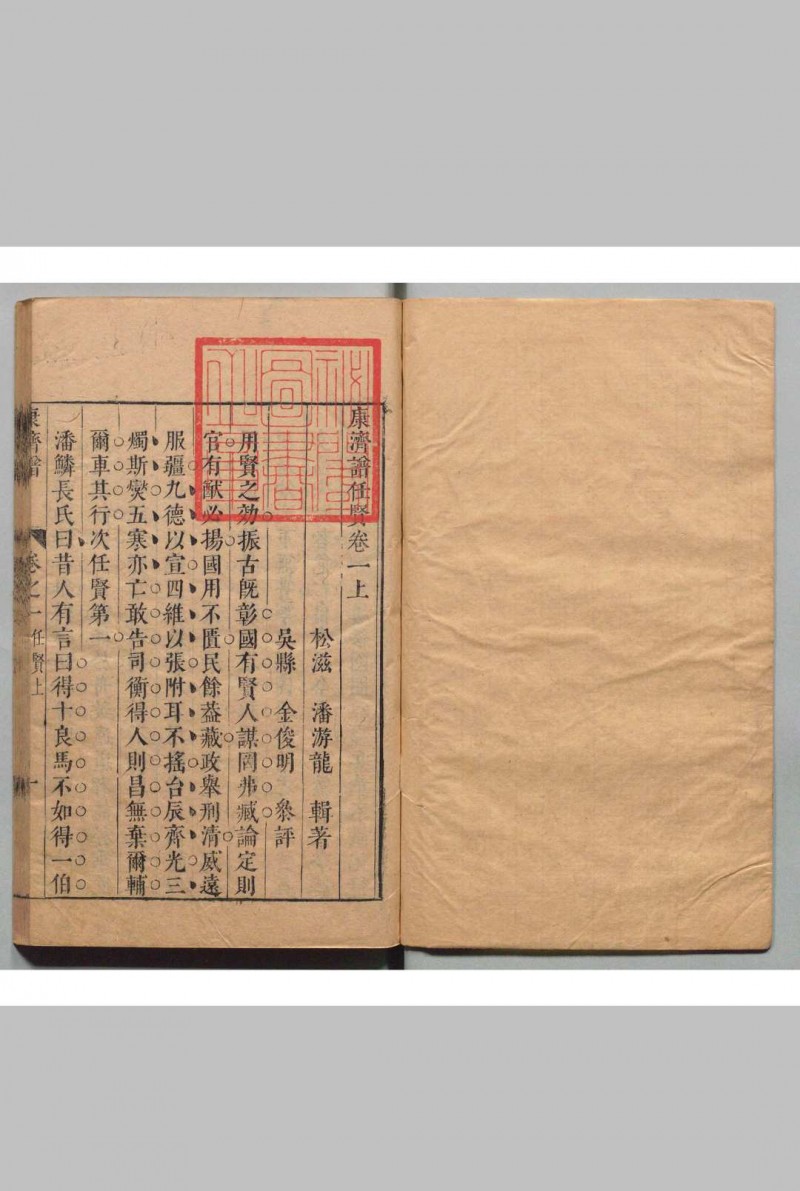 康濟譜任賢卷一上
松滋 潘游龍 輯著
吳縣 金俊明 叅評
用賢之効振古旣彰國有賢人謀罔弗臧論定則
官有猷必揚國用不匱民餘葢藏政舉刑清威遠
服疆九德以宣四維以張附耳不搖台辰齊光三
燭斯爕五寒亦亡敢告司衡得人則昌無棄爾輔
爾車其行次任賢第一
潘鱗長氏曰昔人有言曰得十良馬不如得一伯
康濟譜 卷之一 任賢上 一